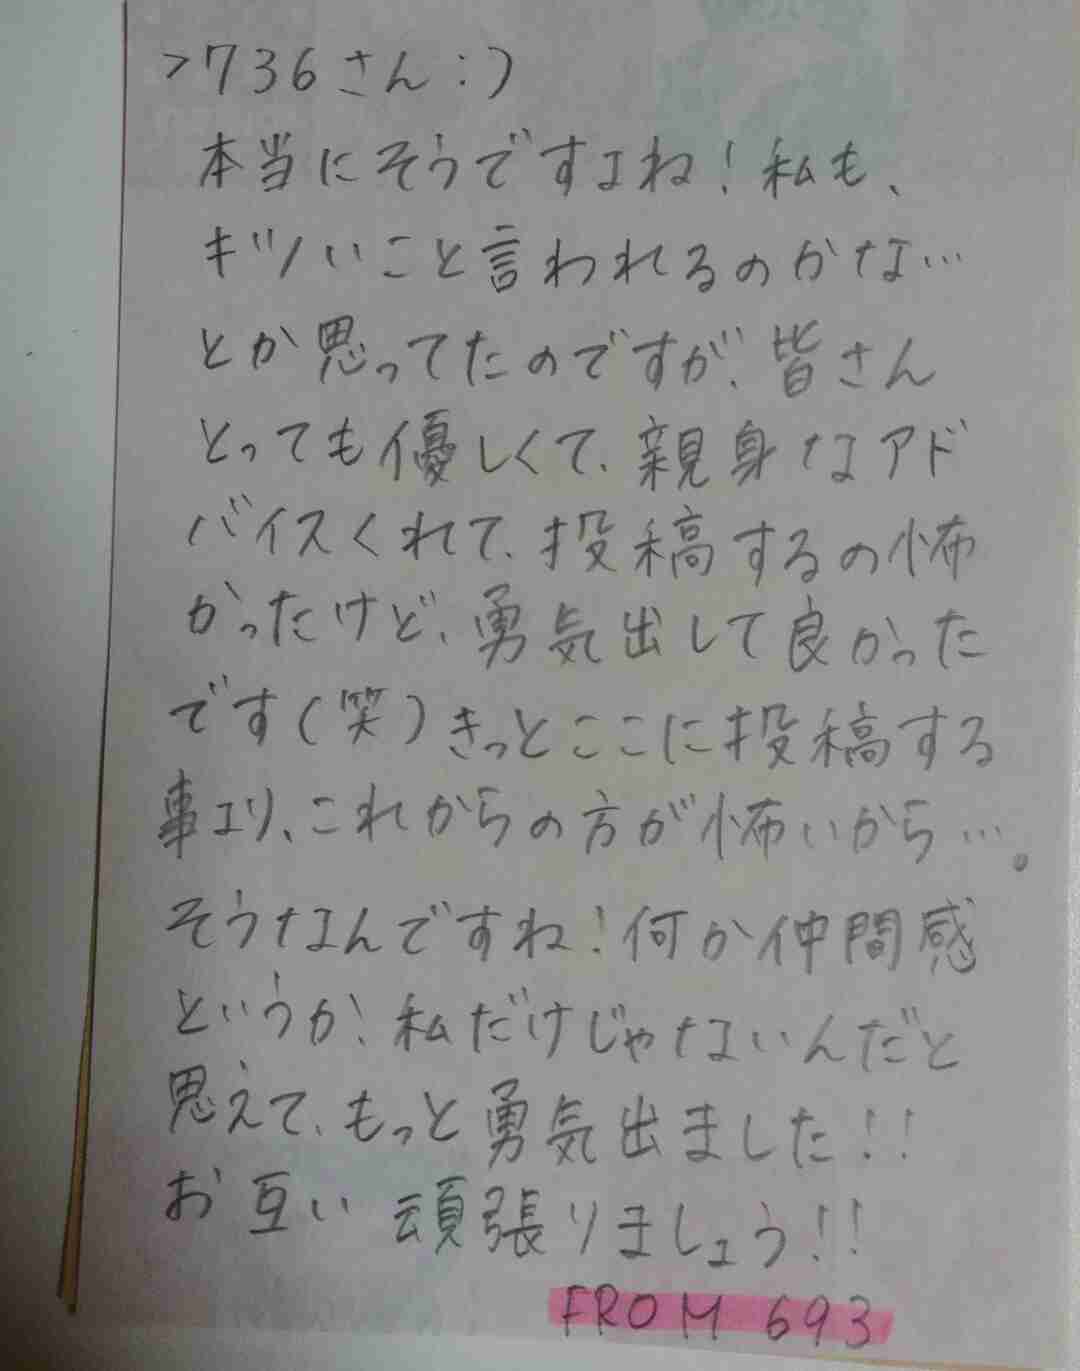 >736さん:)
本当にそうですよね!私も、
キツいこと言われるのかな…
とか思ってたのですが、皆さん
とっても優しくて、親身なアド
バイスくれて、投稿するの怖
かったけど、勇気出して良かった
です(笑)きっとここに投稿する
事より、これからの方が怖いから…。
そうなんですね!何か仲間感
というか、私だけじゃないんだと
思えて、もっと勇気出ました!!
お互い頑張りましょう!!
FROM 693